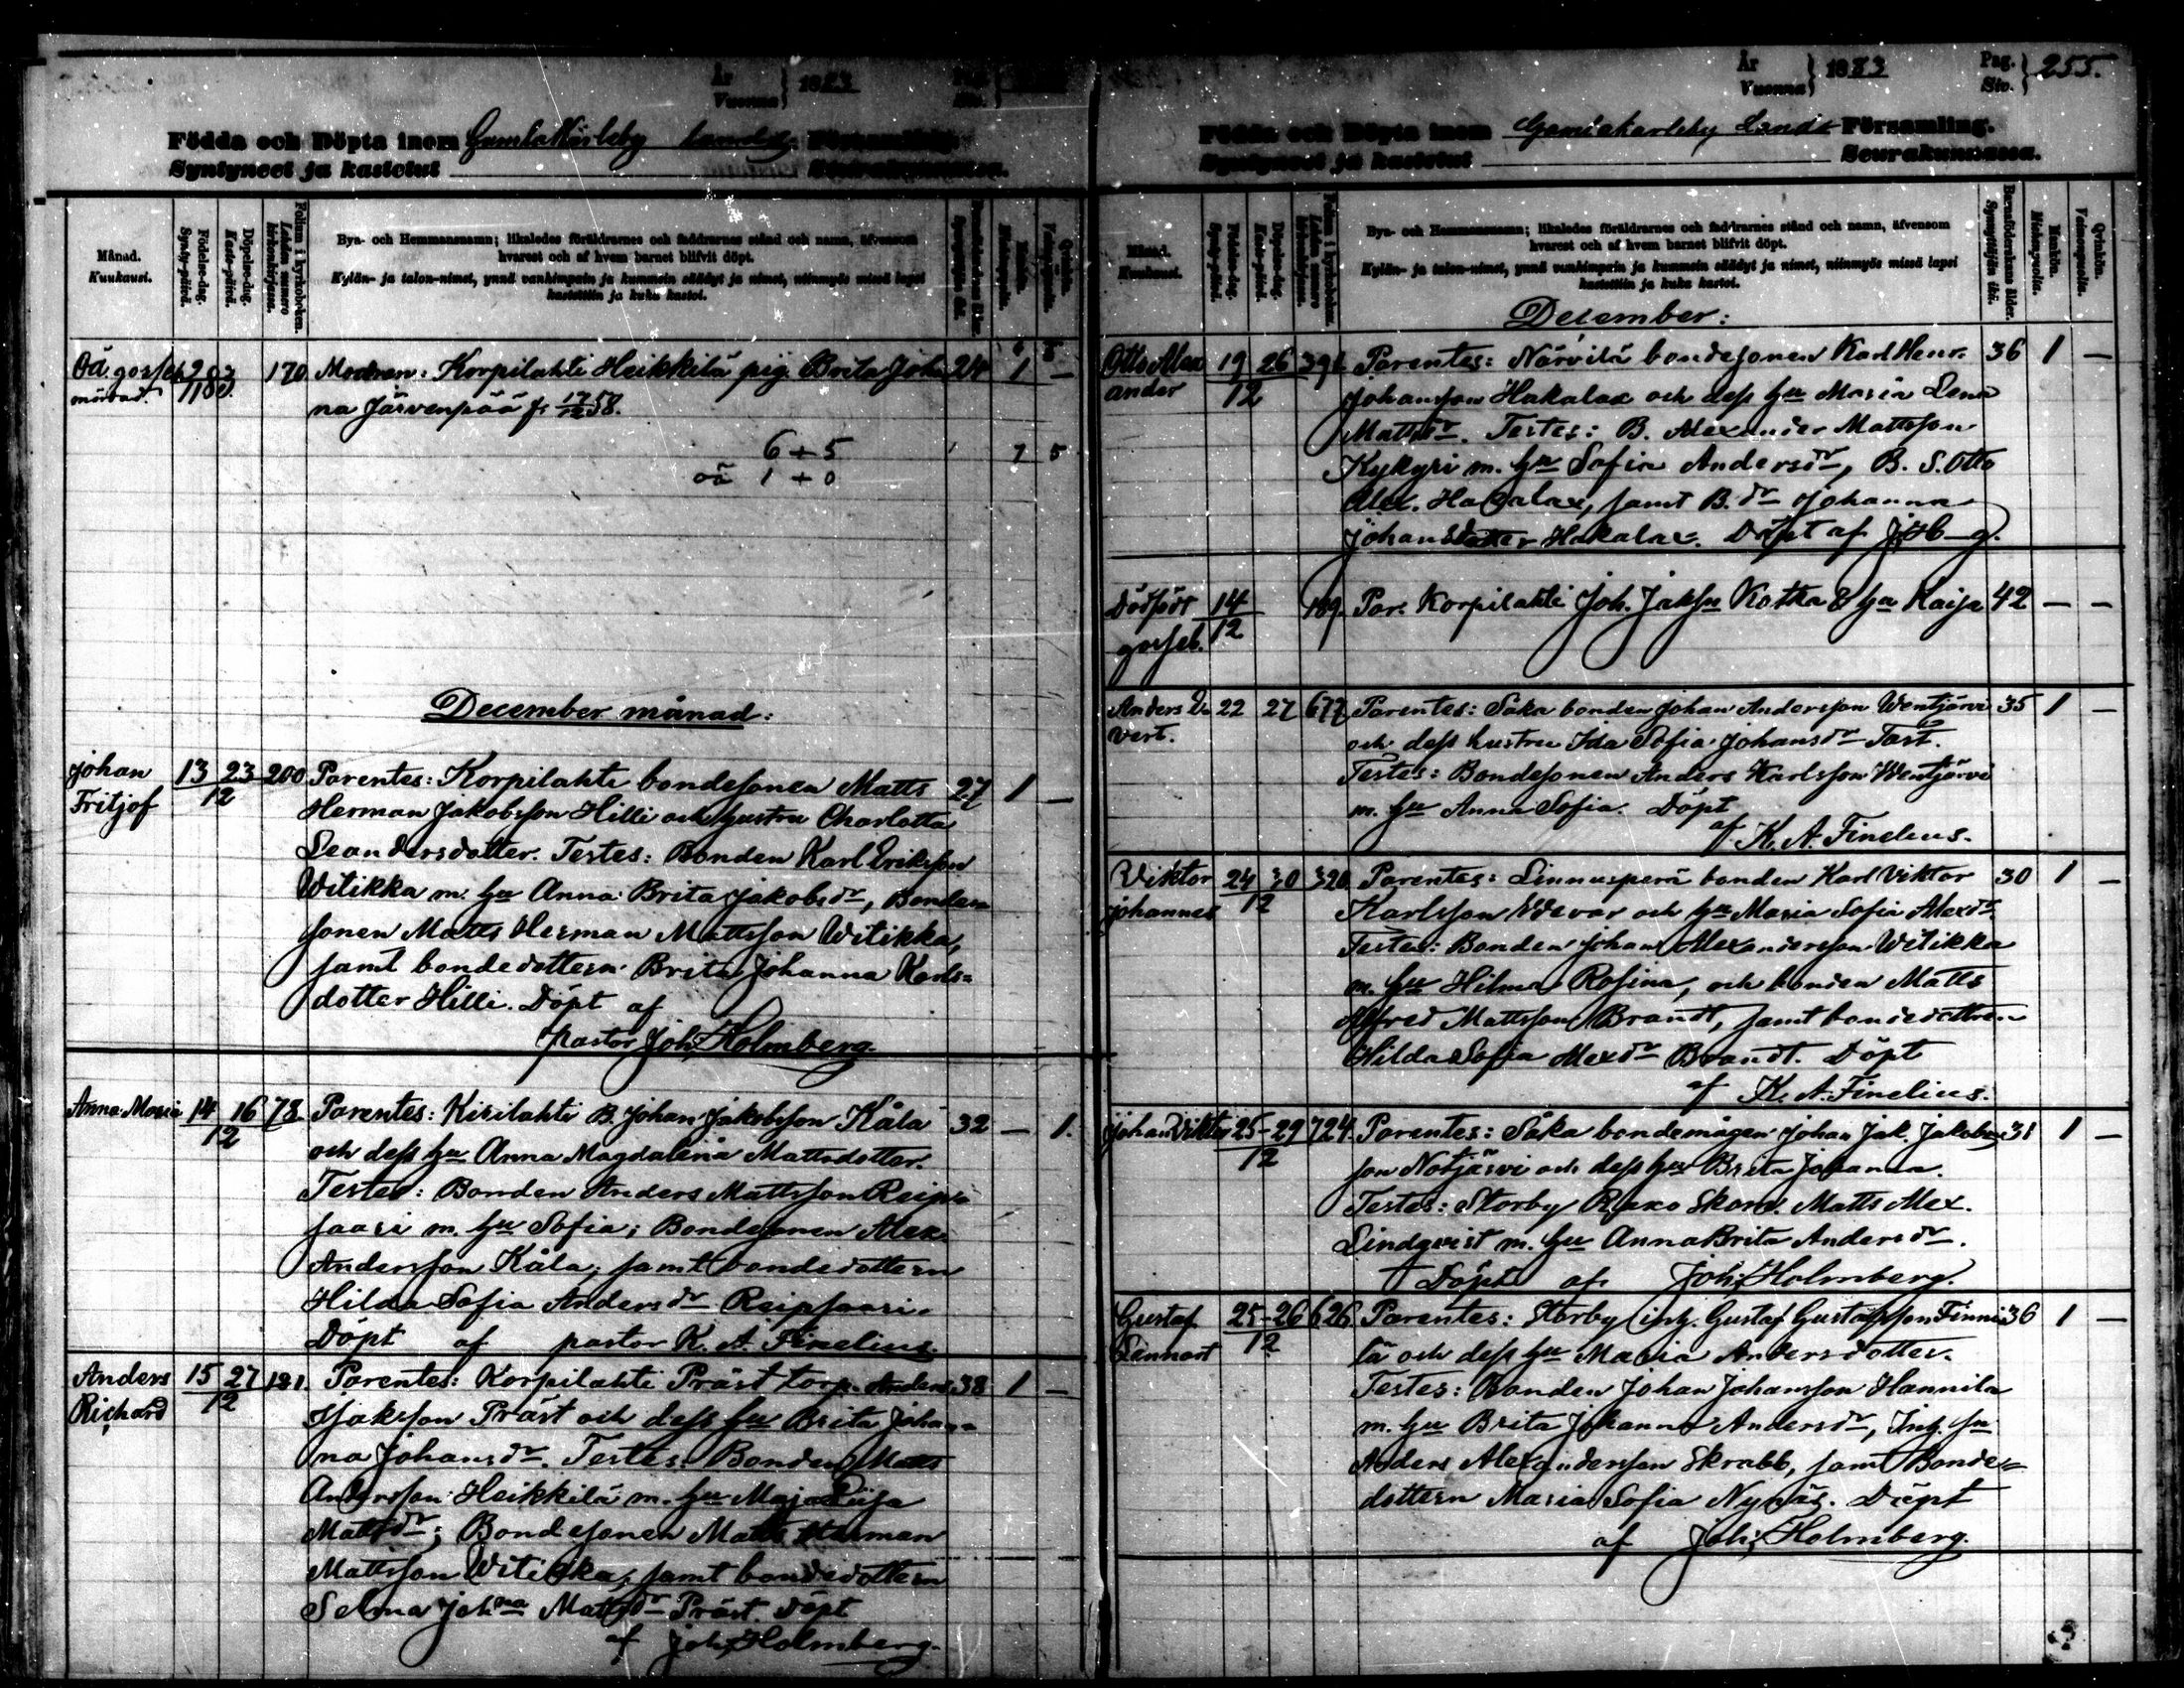 År
Vuonna } 1883
Födda och Döpta inom Gamlakarleby Landsf. Församling.
Syntyneet ja kastetut Seurakunnassa.
Månad.
Kuukausi.
Födelse-dag.
Synty-päivä.
Döpelse-dag.
Kaste-päivä.
Folium i kyrkoboken.
Lehden numero kirkonkirjassa.
Bya- och Hemmansnamn; likaledes föräldrarnes och faddrarnes stånd och namn, äfvensom
hvarest och af hvem barnet blifvit döpt.
Kylän- ja talon-nimet, ynnä vanhimpain ja kummein säädyt ja nimet, niinmyös missä lapsi
kastettiin ja kuka kastoi.
Oä. gosseb. 28 170 Modren: Korpilahti Heikkilä pig. Brita Joh 24 1 —
mörtad. 11 83
na Järvenpää f. 17/12 58.
6 + 5 7 5
oä 1 + 0
December månad:
Johan 13 23 200 Parentes: Korpilahti bondesonen Matts 27 1 —
Fritjof 12 Herman Jakobsson Hilli och hustru Charlotta
Leandersdotter. Testes: Bonden Karl Eriksson
Witikka m. hu Anna Brita Jakobsdr, Bonde
sonen Matts Herman Mattsson Witikka,
samt bondedottern Brita Johanna Karls=
dotter Hilli. Döpt af
pastor Joh. Holmberg.
Anna Maria 14 16 78 Parentes: Kirilahti B. Johan Jakobsson Kåla 32 — 1.
12 och dess hu Anna Magdalena Mattsdotter.
Testes: Bonden Anders Mattsson Reip=
saari m. hu Sofia; Bondesonen Alex.
Andersson Kåla, samt bondedottern
Hilda Sofia Andersdr Reipsaari.
Döpt af pastor K. A. Finelius.
Anders 15 27 181 Parentes: Korpilahti Präst torp. Anders 38 1 —
Richard 12 Isaksson Präst och dess hu Brita Johan=
na Johansdr. Testes: Bonden Matts
Andersson Heikkilä m. hu Maja Liisa
Mattsdr; Bondesonen Matts Herman
Mattsson Witikka, samt bondedottern
Selma Johna Mattsdr Präst. Döpt
af Joh. Holmberg.
År
Vuonna } 1883
Pag.
Siv. } 255.
Födda och Döpta inom Gamlakarleby Lands Församling.
Syntyneet ja kastetut Seurakunnassa.
Månad.
Kuukausi.
Födelse-dag.
Synty-päivä.
Döpelse-dag.
Kaste-päivä.
Folium i kyrkoboken.
Lehden numero kirkonkirjassa.
Bya- och Hemmansnamn; likaledes föräldrarnes och faddrarnes stånd och namn, äfvensom
hvarest och af hvem barnet blifvit döpt.
Kylän- ja talon-nimet, ynnä vanhimpain ja kummein säädyt ja nimet, niinmyös missä lapsi
kastettiin ja kuka kastoi.
Barnaföderskans ålder.
Synnyttäjän ikä.
Mankön.
Miehenpuolia.
Qvinkön.
Vaimonpuolia.
December:
Otto Alex 19 26 391 Parentes: Närvilä bondesonen Karl Henr. 36 1 —
ander 12 Johansson Hakalax och dess hu Maria Lena
Mattsdr. Testes: B. Alexander Mattsson
Kykyri m. hu Sofia Andersdr, B. S. Otto
Alex. Hakalax, samt B. dr Johanna
Johansdotter Hakalax. Döpt af J. H—g.
Dödfödt 14 189 Par. Korpilahti Joh. Jakssn Kotka & ha Kaisa 42 — —
gosseb. 12
Anders E= 22 27 677 Parentes: Såka bonden Johan Andersson Wentjärvi 35 1 —
vert. och dess hustru Ida Sofia Johansdr Tast.
Testes: Bondesonen Anders Karlsson Wentjärvi
m. hu Anna Sofia. Döpt
af K. A. Finelius.
Viktor 24 30 320 Parentes: Linnusperä bonden Karl Viktor 30 1 —
Johannes 12 Karlsson och hu Maria Sofia Alexdr.
Testes: Bonden Johan Alexandersson Witikka
m. hu Hilma Rosina, och bonden Matts
Alfred Mattsson Brandt, samt bondedottren
Hilda Sofia Alexdr Brandt. Döpt
af K. A. Finelius.
Johan Viktor 25-29 724 Parentes: Såka bondemågen Johan Jak. Jakobs= 31 1 —
12 son Notjärvi och dess hu Brita Johanna.
Testes: Storby Skom. Matts Alex.
Lindqvist m. hu Anna Brita Andersdr.
Döpt af Joh. Holmberg.
Gustaf 25-26 626 Parentes: Storby inh. Gustaf Gustafsson Finni= 36 1 —
Lennart 12 lä och dess hu Maria Andersdotter.
Testes: Bonden Johan Johansson Hannila
m. hu Brita Johanna Andersdr, Inh. sn
Anders Alexandersson Skrabb, samt Bonde=
dottern Maria Sofia Nygår. Döpt
af Joh. Holmberg.